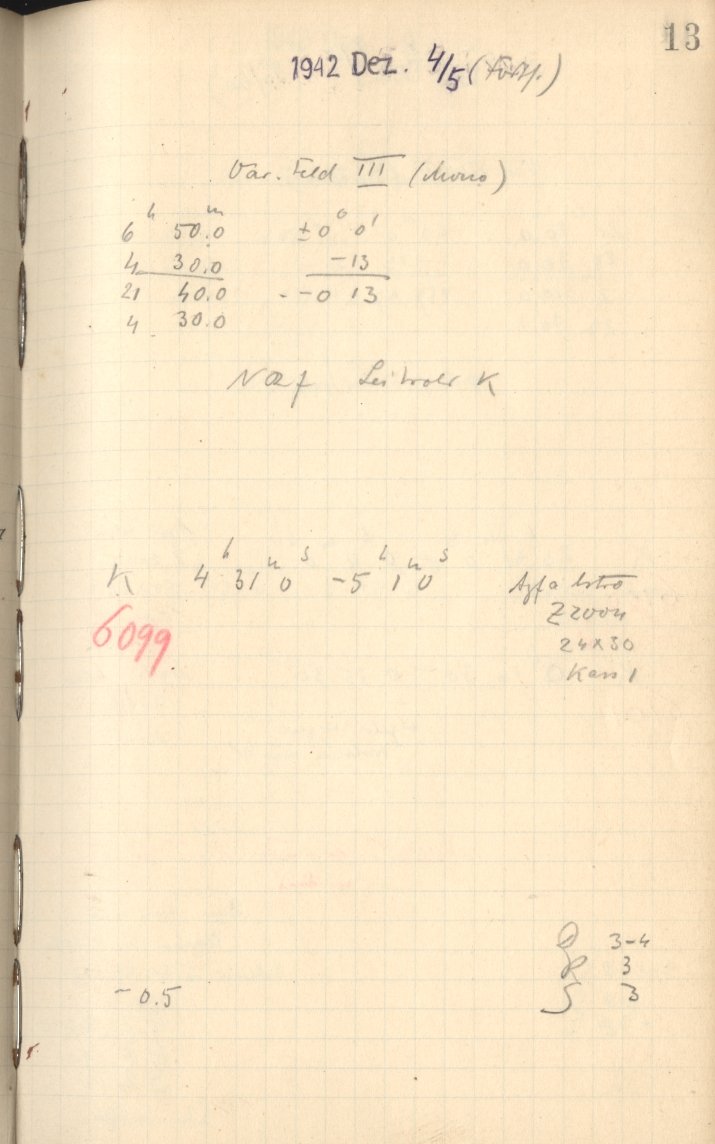 13
1942 Dez. 4/5 (Forts.)
Var. Feld III (Mono)
6 h 50.0 m ±0° 0'
4 30.0 -13
21 40.0 -0 13
4 30.0
K
K 4 h 31 m 0 s -5 h 1 m 0 s Agfa Astro
6099 Z 2004
24x30
Kass 1
3-4
R 3
-0.5 S 3